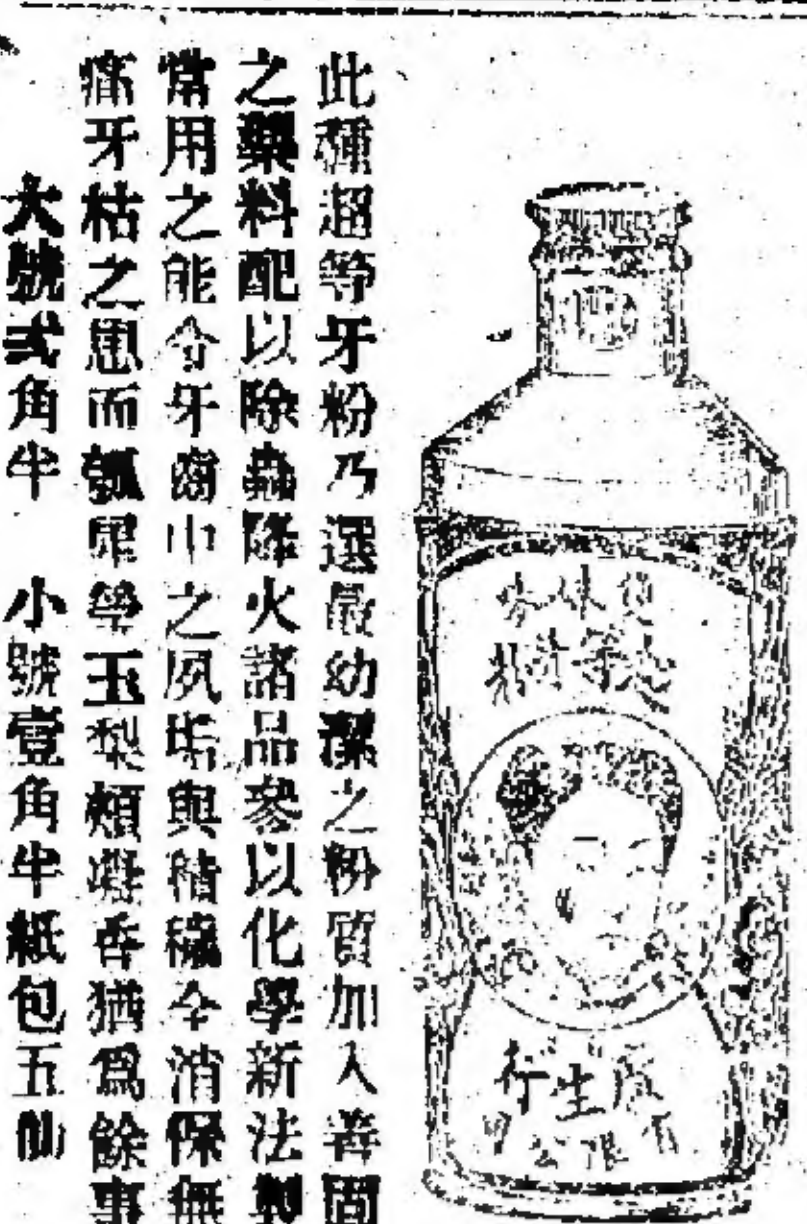 此種超等牙粉乃選最幼潔之粉質加入善固
之藥料配以除蟲降火諸品參以化學新法製
常用之能令牙齒中之夙垢與積穢全消保無
痛牙枯之患而瓠犀學玉梨頰 香猶為餘事
大號弍角半　小號壹角半紙包五仙
廣生行
有限公司